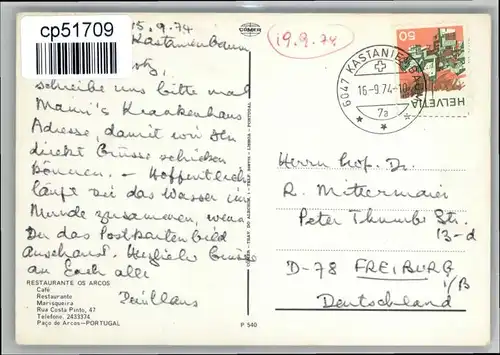 cp51709
15.9.74
Kastanienbaum
schreibe uns bitte mal
Mami's Krankenhaus
Adresse, damit wir ihr
direkt Grüsse schicken
können. — Hoffentlich
läuft dir das Wasser im
Munde zusammen, wenn
Du das Postkartenbild
anschaust. Herzliche Grüsse
an Euch alle
RESTAURANTE OS ARCOS
Café
Restaurante
Marisqueira
Rua Costa Pinto, 47
Telefone, 2433374
Paço de Arcos—PORTUGAL
P 540
COMER
19.9.74
6047 KASTANIENBAUM
16-9.74-10
7a
50
HELVETIA
Herrn Prof. Dr.
R. Mittermaier
Peter Thumb Str.
13-d
D-78 FREIBURG
i/B
Deutschland